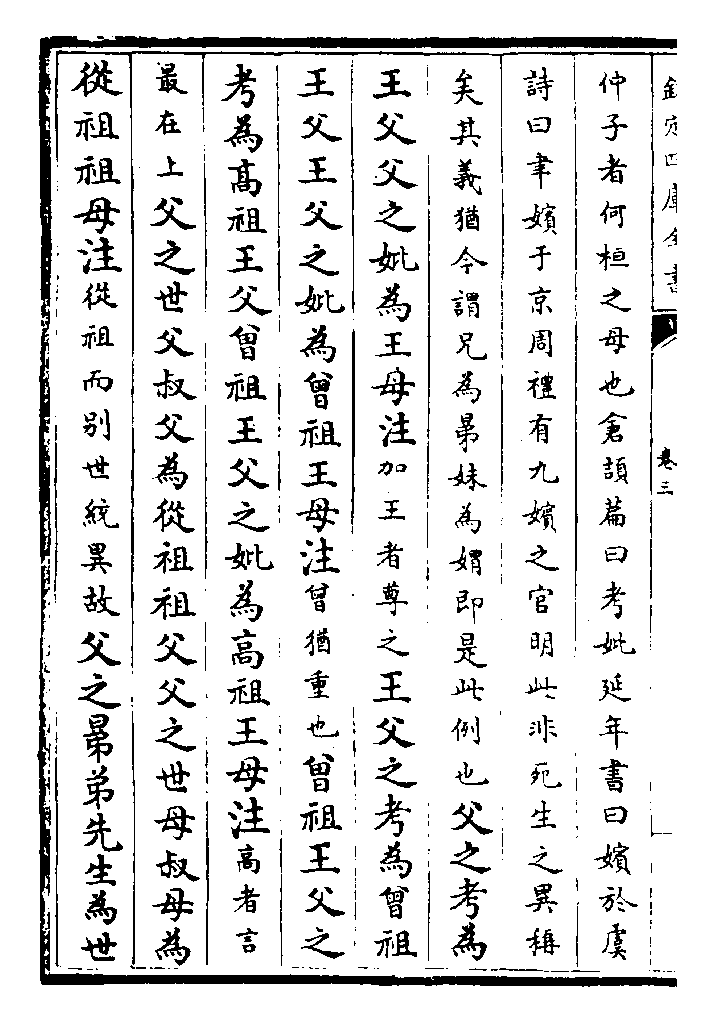 欽定四庫全書
卷三
仲子者何桓之母也倉頡篇曰考妣延年書曰嬪於虞
詩曰聿嬪于京周禮有九嬪之官明此非死生之異稱
矣其義猶今謂兄為晜妹為媦即是此例也父之考為
王父父之妣為王母注加王者尊之王父之考為曾祖
王父王父之妣為曾祖王母注曾猶重也曾祖王父之
考為高祖王父曾祖王父之妣為高祖王母注高者言
最在上父之世父叔父為從祖祖父父之世母叔母為
從祖祖母注從祖而別世統異故父之晜弟先生為世